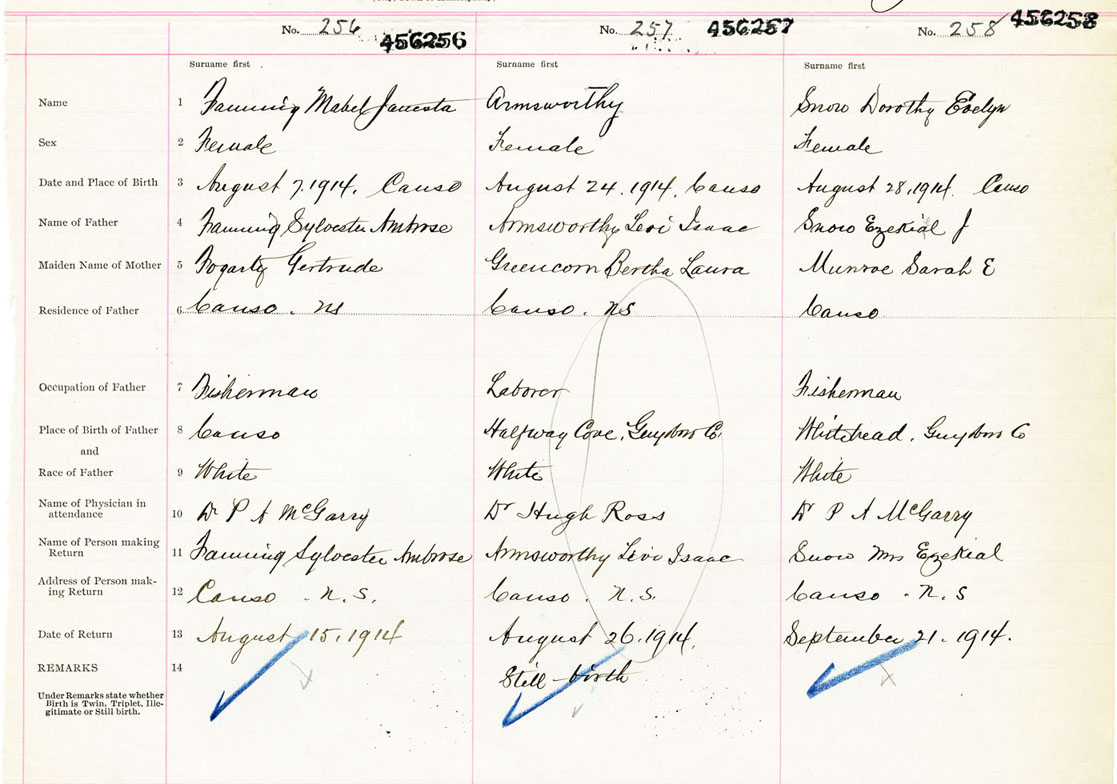 No. 256 456256 No. 257 456257 No. 258 456258
Surname first Surname first Surname first
Name 1 Fanning Mabel Armsworthy Snow Dorothy Evelyn
Sex 2 Female Female Female
Date and Place of Birth 3 August 7, 1914, Canso August 24, 1914, Canso August 28, 1914. Canso
Name of Father 4 Fanning Sylvester Ambrose Armsworthy Levi Isaac Snow Ezekial J
Maiden Name of Mother 5 Fogarty Gertrude Greencorn Bertha Laura Munroe Sarah E
Residence of Father 6 Canso. NS Canso. NS Canso
Occupation of Father 7 Fisherman Laborer Fisherman
Place of Birth of Father 8 Canso Halfway Cove, Guysboro Co. Whitehead, Guysboro Co
and
Race of Father 9 White White White
Name of Physician in
attendance 10 Dr P A McGarry Dr Hugh Ross Dr P A McGarry
Name of Person making
Return 11 Fanning Sylvester Ambrose Armsworthy Levi Isaac Snow Mrs Ezekial
Address of Person mak-
ing Return 12 Canso - N.S. Canso. N.S. Canso - N.S
Date of Return 13 August 15, 1914 August 26, 1914. September 21. 1914.
REMARKS 14 Still-birth
Under Remarks state whether
Birth is Twin, Triplet, Ille-
gitimate or Still birth.